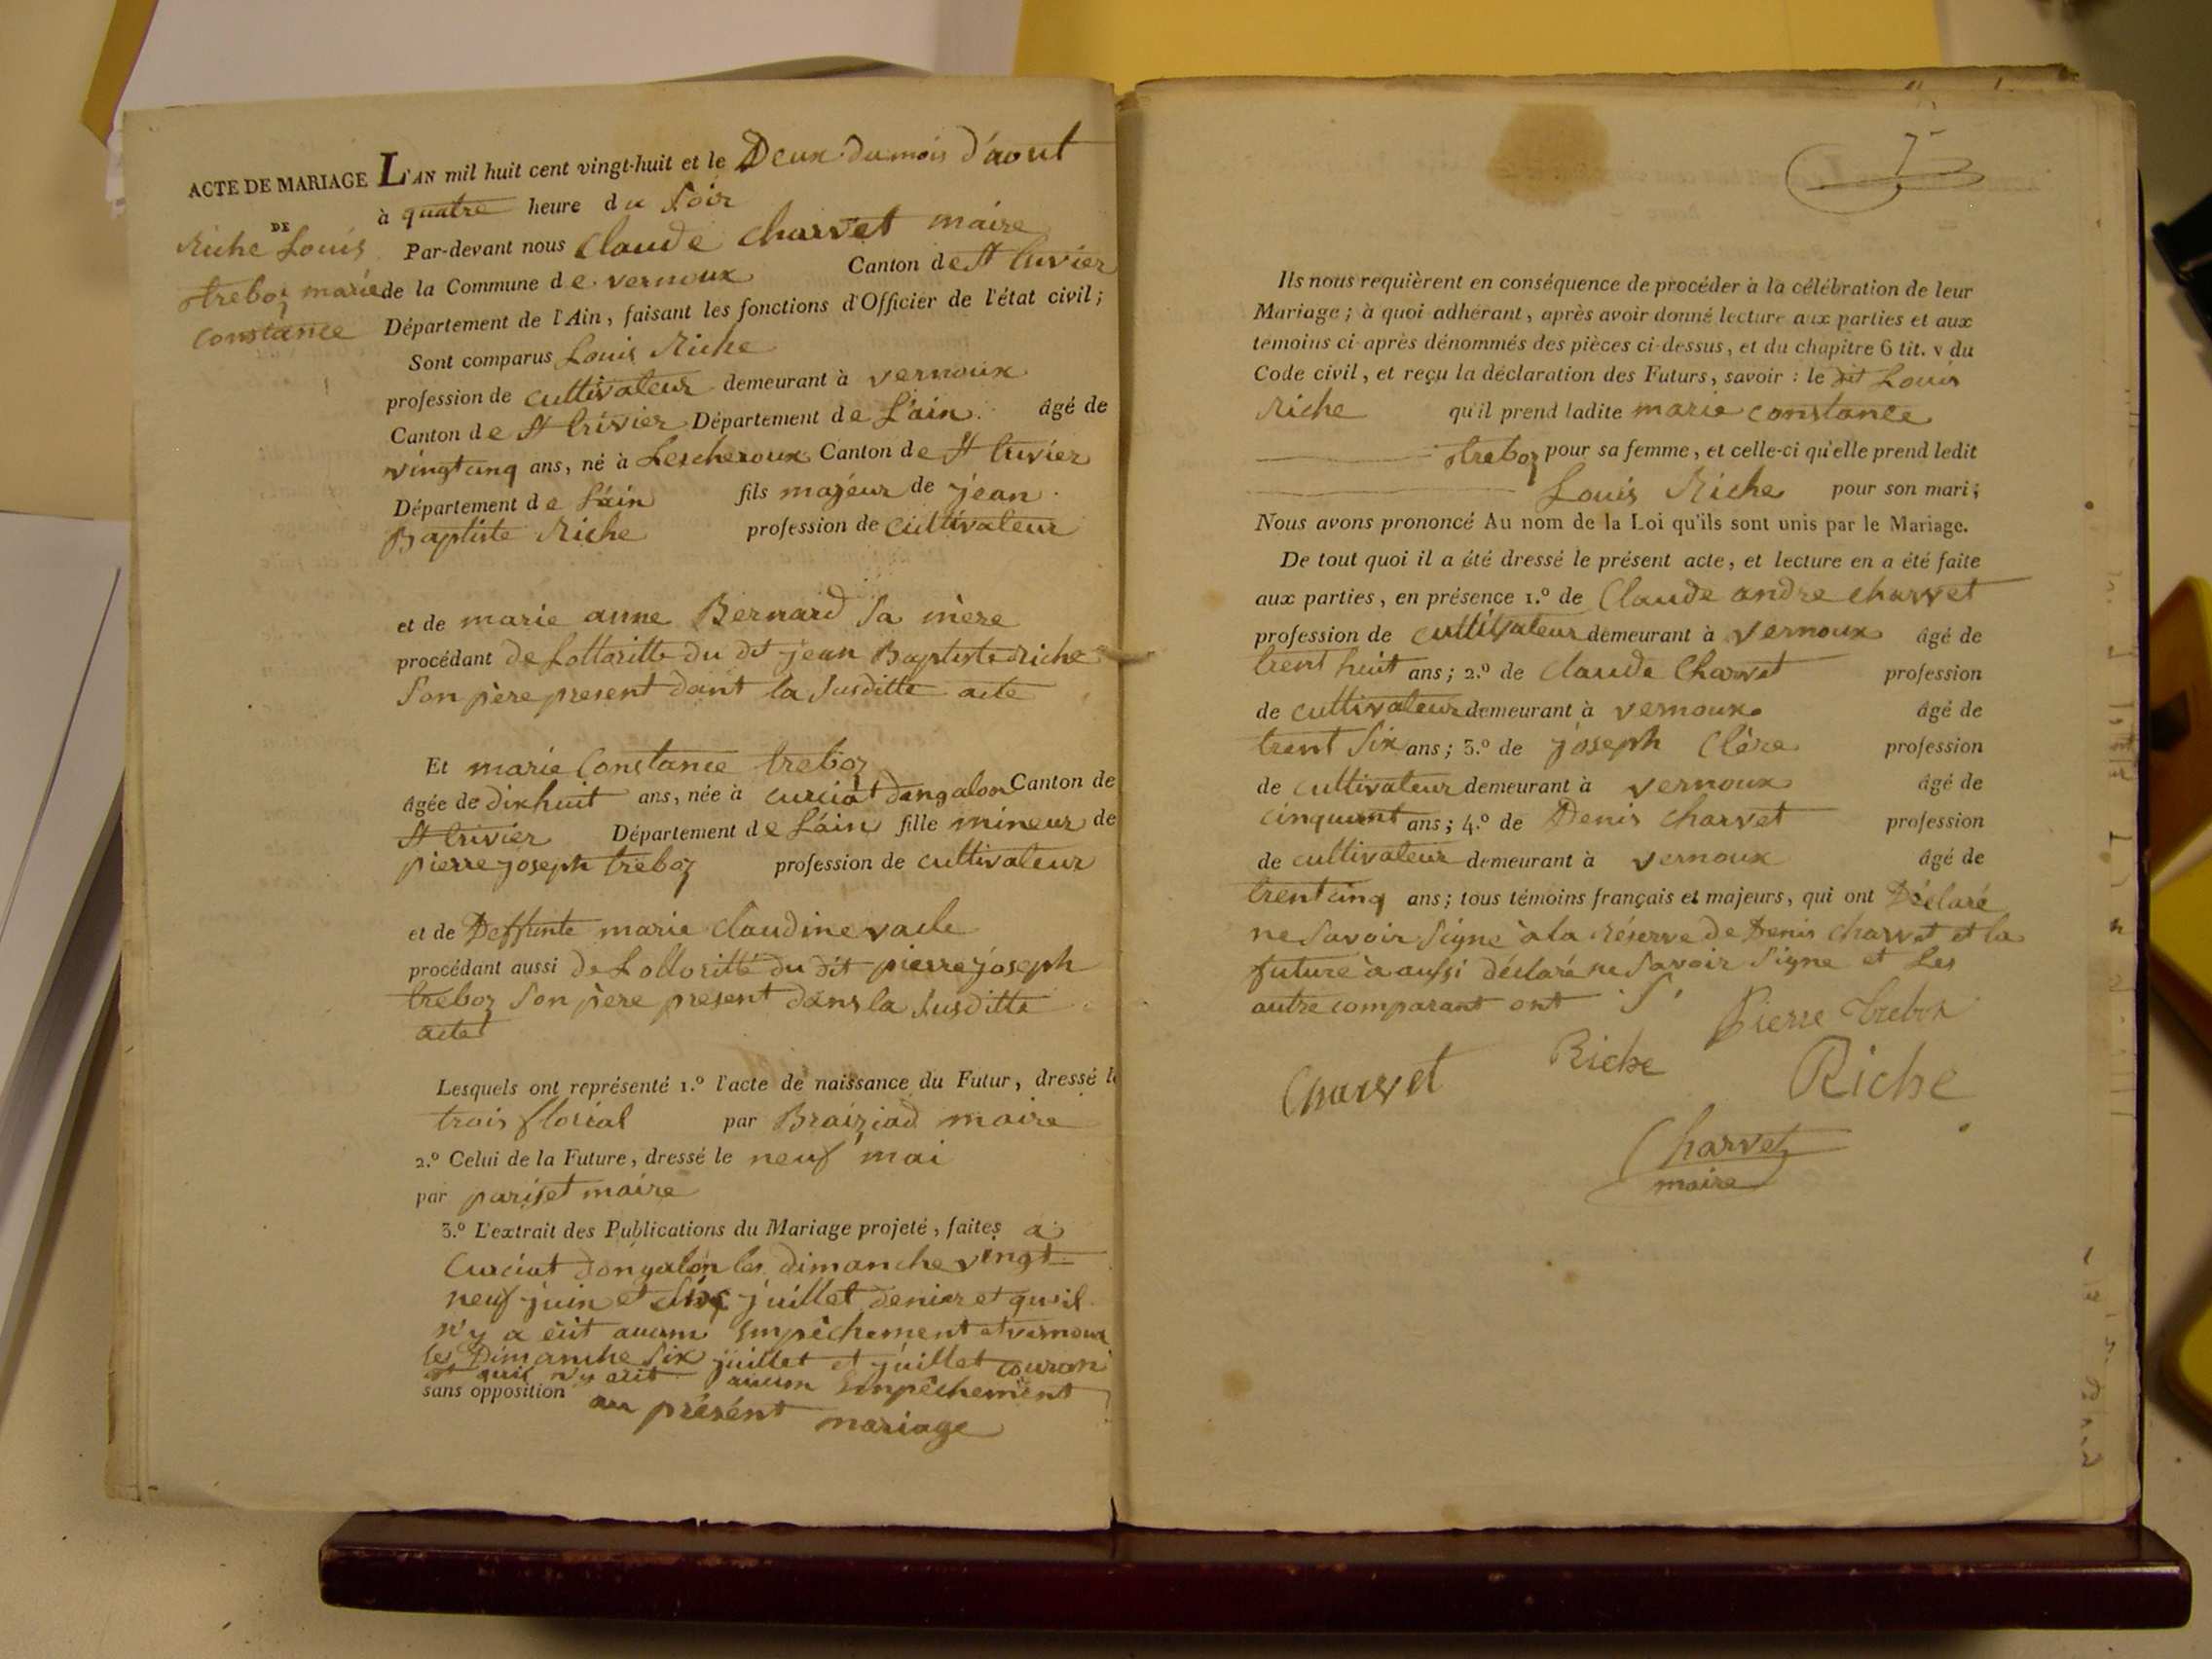 ACTE DE MARIAGE
DE
Riche Louis
treboz marie
Constance
L'AN mil huit cent vingt-huit et le Deux du mois d'aout
à quatre heure du soir
Par-devant nous Claude Charvet maire
de la Commune de vernoux Canton de St trivier
Département de l'Ain, faisant les fonctions d'Officier de l'état civil;
Sont comparus Louis Riche
profession de cultivateur demeurant à vernoux
Canton de St trivier Département de L'ain âgé de
vingt cinq ans, né à Lescheroux Canton de St trivier
Département de L'ain fils majeur de jean
Baptiste Riche profession de cultivateur
et de marie anne Bernard sa mère
procédant de Lottoritte du dit jean Baptiste Riche
son père present dant la susditte acte
Et marie Constance treboz
âgée de dix huit ans, née à curciat dongalon Canton de
St trivier Département de L'ain fille mineur de
pierre joseph treboz profession de cultivateur
et de Deffunte marie claudine vacle
procédant aussi de Lottoritté du dit pierre joseph
treboz son père present dans la susditte
acte
Lesquels ont représenté 1.º l'acte de naissance du Futur, dressé le
trois floréal par Braiziad maire
2.º Celui de la Future, dressé le neuf mai
par pariset maire
3.º L'extrait des Publications du Mariage projeté, faites a
Curciat dongalon les dimanche vingt
neuf juin et six juillet denier et qu'il
n'y a eüt aucun Empêchement et vernoux
les Dimanche six juillet et juillet couran
et quil n'y eüt aucun Empêchement
sans opposition au présént mariage
Ils nous requièrent en conséquence de procéder à la célébration de leur
Mariage; à quoi adhérant, après avoir donné lecture aux parties et aux
témoins ci-après dénommés des pièces ci-dessus, et du chapitre 6 tit. v du
Code civil, et reçu la déclaration des Futurs, savoir: le dit Louis
Riche qu'il prend ladite marie constance
treboz pour sa femme, et celle-ci qu'elle prend ledit
Louis Riche pour son mari;
Nous avons prononcé Au nom de la Loi qu'ils sont unis par le Mariage.
De tout quoi il a été dressé le présent acte, et lecture en a été faite
aux parties, en présence 1.º de Claude andre charvet
profession de cultivateur demeurant à vernoux âgé de
trent huit ans; 2.º de claude Charvet profession
de cultivateur demeurant à vernoux âgé de
trent six ans; 3.º de joseph Clére profession
de cultivateur demeurant à vernoux âgé de
cinquent ans; 4.º de Denis charvet profession
de cultivateur demeurant à vernoux âgé de
trent cinq ans; tous témoins français et majeurs, qui ont Déclaré
ne savoir signe à la réserve de Denis charvet et la
future à aussi déclaré ne savoir signe et les
autre comparant ont S'
Pierre treboz
Charvet Riche Riche
Charvet
maire